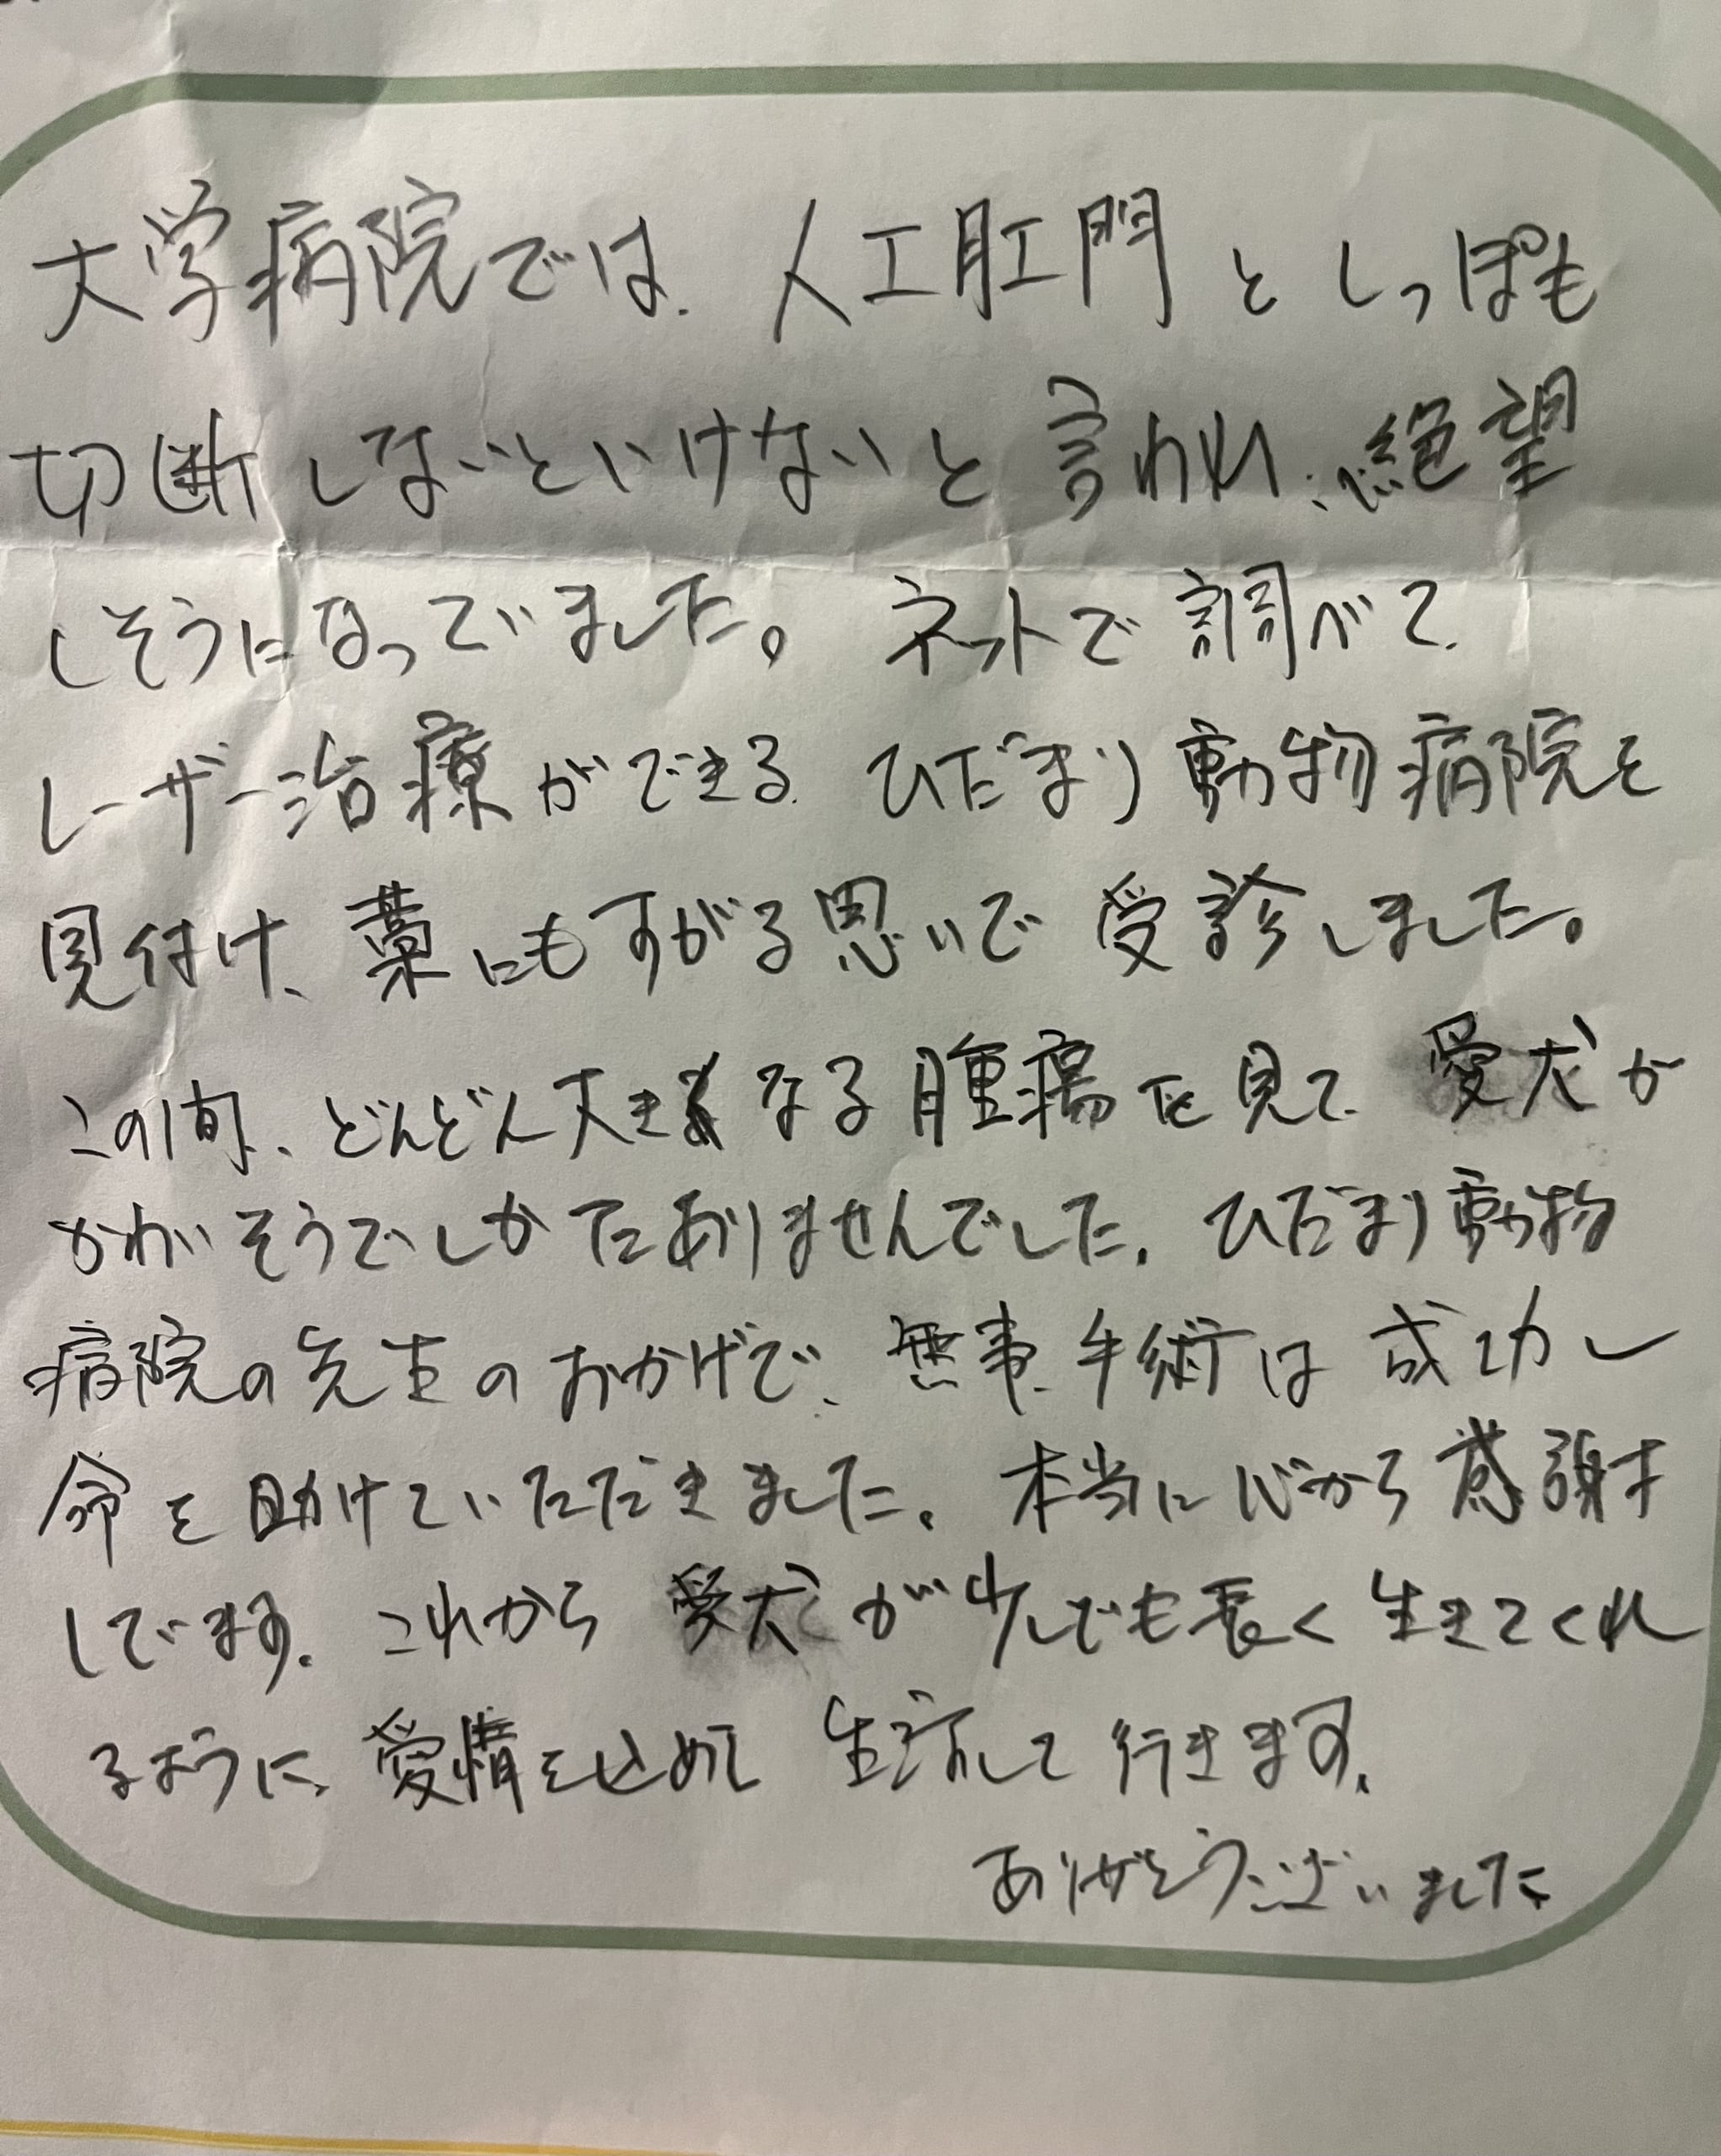 大学病院では、人工肛門としっぽも
切断しないといけないと言われ、絶望
しそうになっていました。ネットで調べて、
レーザー治療ができる ひだまり動物病院を
見付け、藁にもすがる思いで受診しました。
この間、どんどん大きくなる腫瘍を見て、愛犬が
かわいそうでしかたありませんでした。ひだまり動物
病院の先生のおかげで、無事、手術は成功し
命を助けていただきました。本当に心から感謝を
しています。これから愛犬が少しでも長く生きてくれ
るように、愛情を込めて生活して行きます。
ありがとうございました